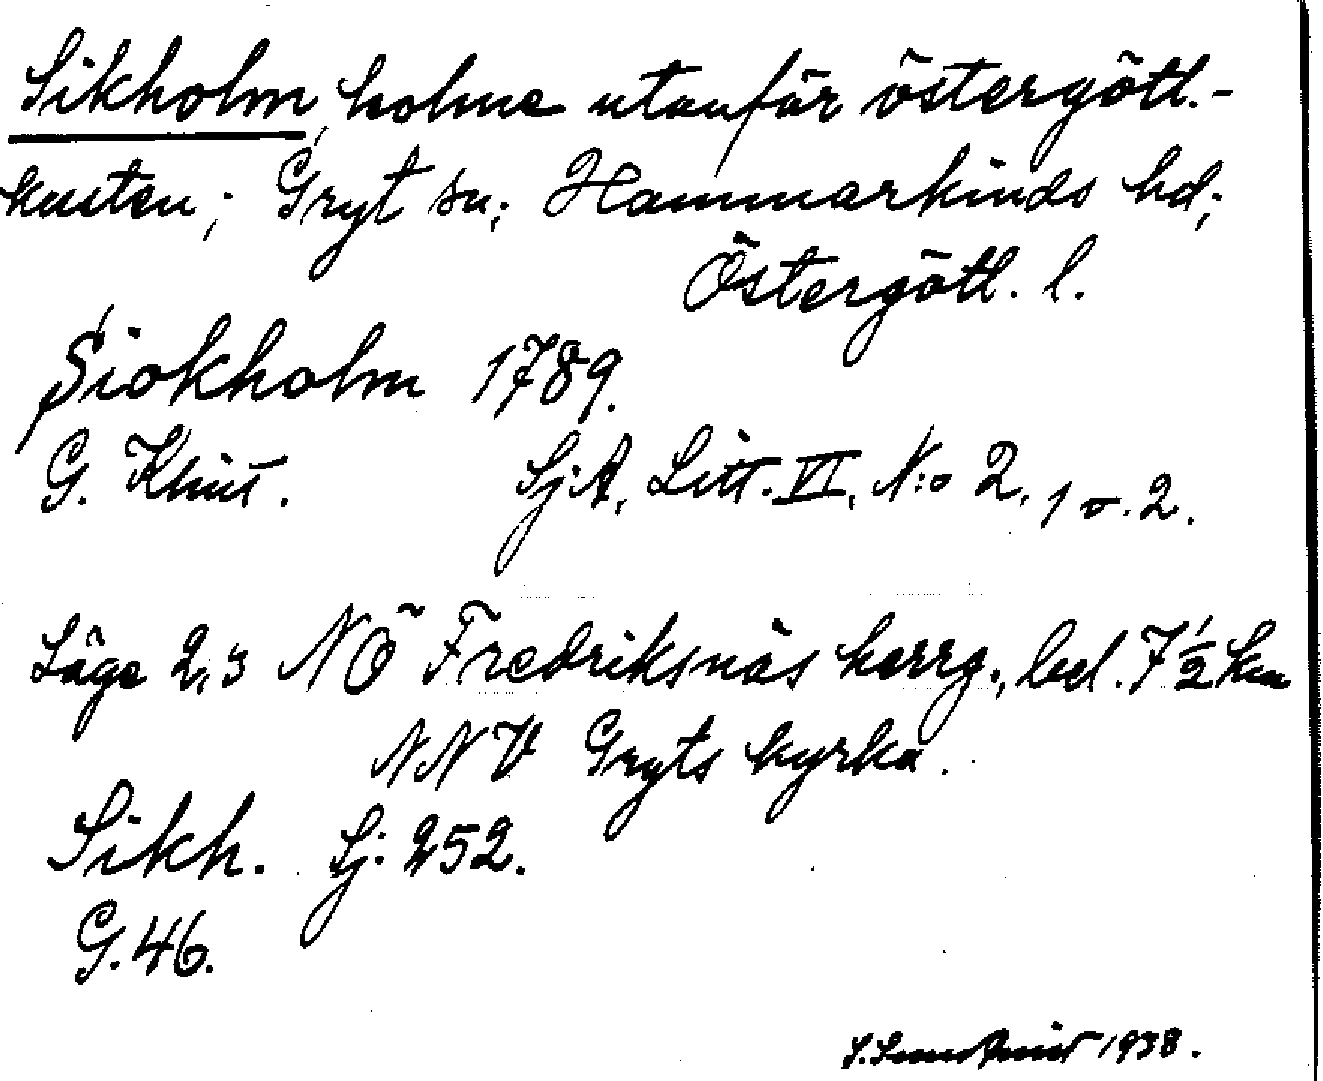 Sikholm, holme utanför östergötl.-
kusten; Gryt sn; Hammarkinds hd;
Östergötl. l.
Siökholm 1789.
G. Klint. Sj.A, Litt. VI, N:o 2, 1 o. 2.
Läge 2,3 NÖ Fredriksnäs herrg., bel. 7 1/2 km
NNV Gryts kyrka.
Sikh. Sj. 252.
G. 46.
1938.